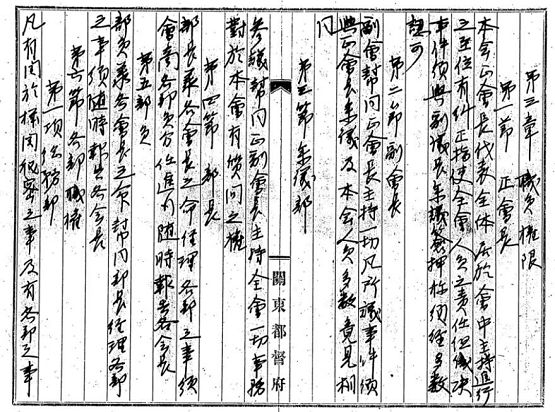 第三章 職員權限
第一節 正會長
本会正會長代表全体 居於會中主持進行
之主位有糾正指使全會人員之責任但議决
事件須與副議長参議簽押於須經多数
認可
第二節 副會長
副會幇同正會長主持一切凡所議事件須
與正會長参議及本会人員多数意見相
同
第三節 参議部
参議幇同正副會長主持全會一切事務
對於本會有質問之權
第四節 部長
部長承各會長之命任理各部之事須
會商各部員分任進行随時報告各会長
第五部員
部員承各會長之命幇同部長任理各部
之事須随時報告各会長
第六節各部職権
第一項公務部
凡有関於機関秘密之事及有各部之事
關東都督府